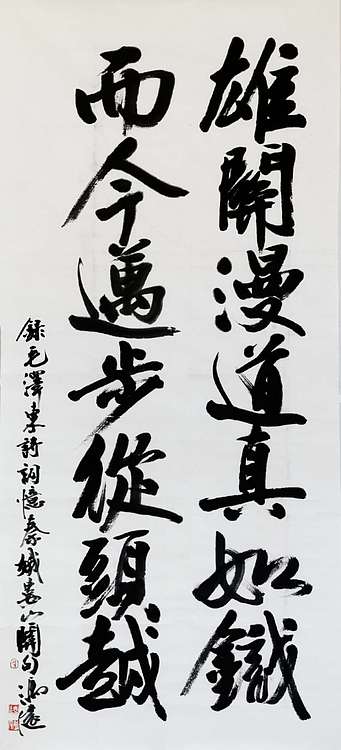 雄關漫道真如鐵
而今邁步從頭越
錄毛澤東詩詞憶秦娥婁山關句 馮遠